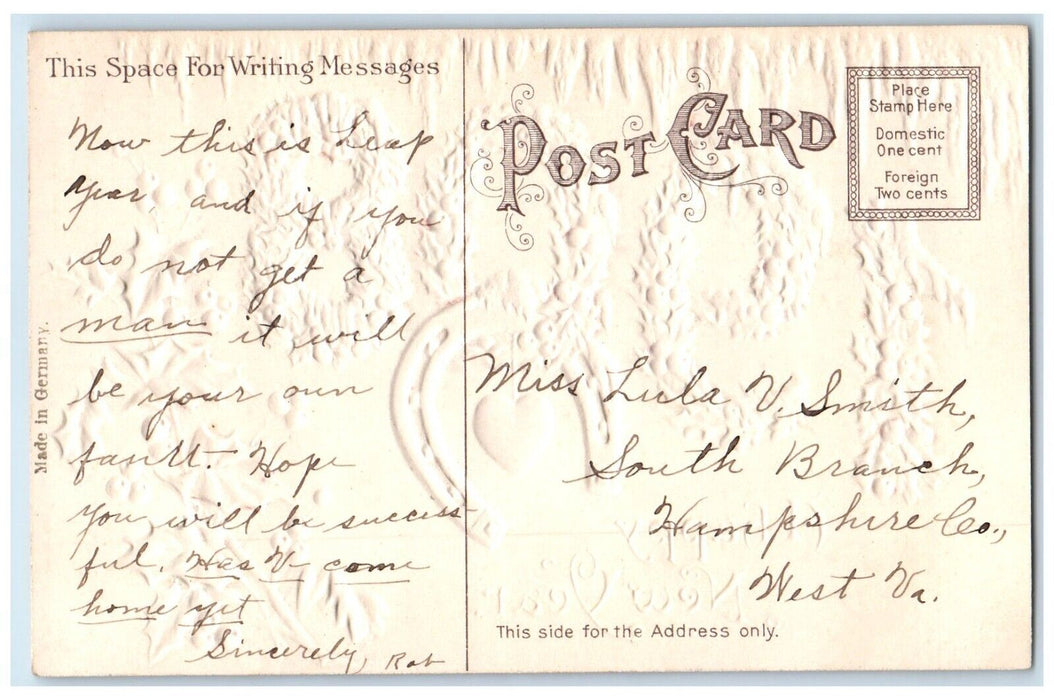 This Space For Writing Messages
Now this is Leap
Year, and if you
do not get a
man it will
be your own
fault. Hope
you will be success-
ful. Has V come
home yet
Sincerely,
Made in Germany.
POST CARD
Place
Stamp Here
Domestic
One cent
Foreign
Two cents
Miss Lula V. Smith,
South Branch,
Hampshire Co.,
West Va.
This side for the Address only.